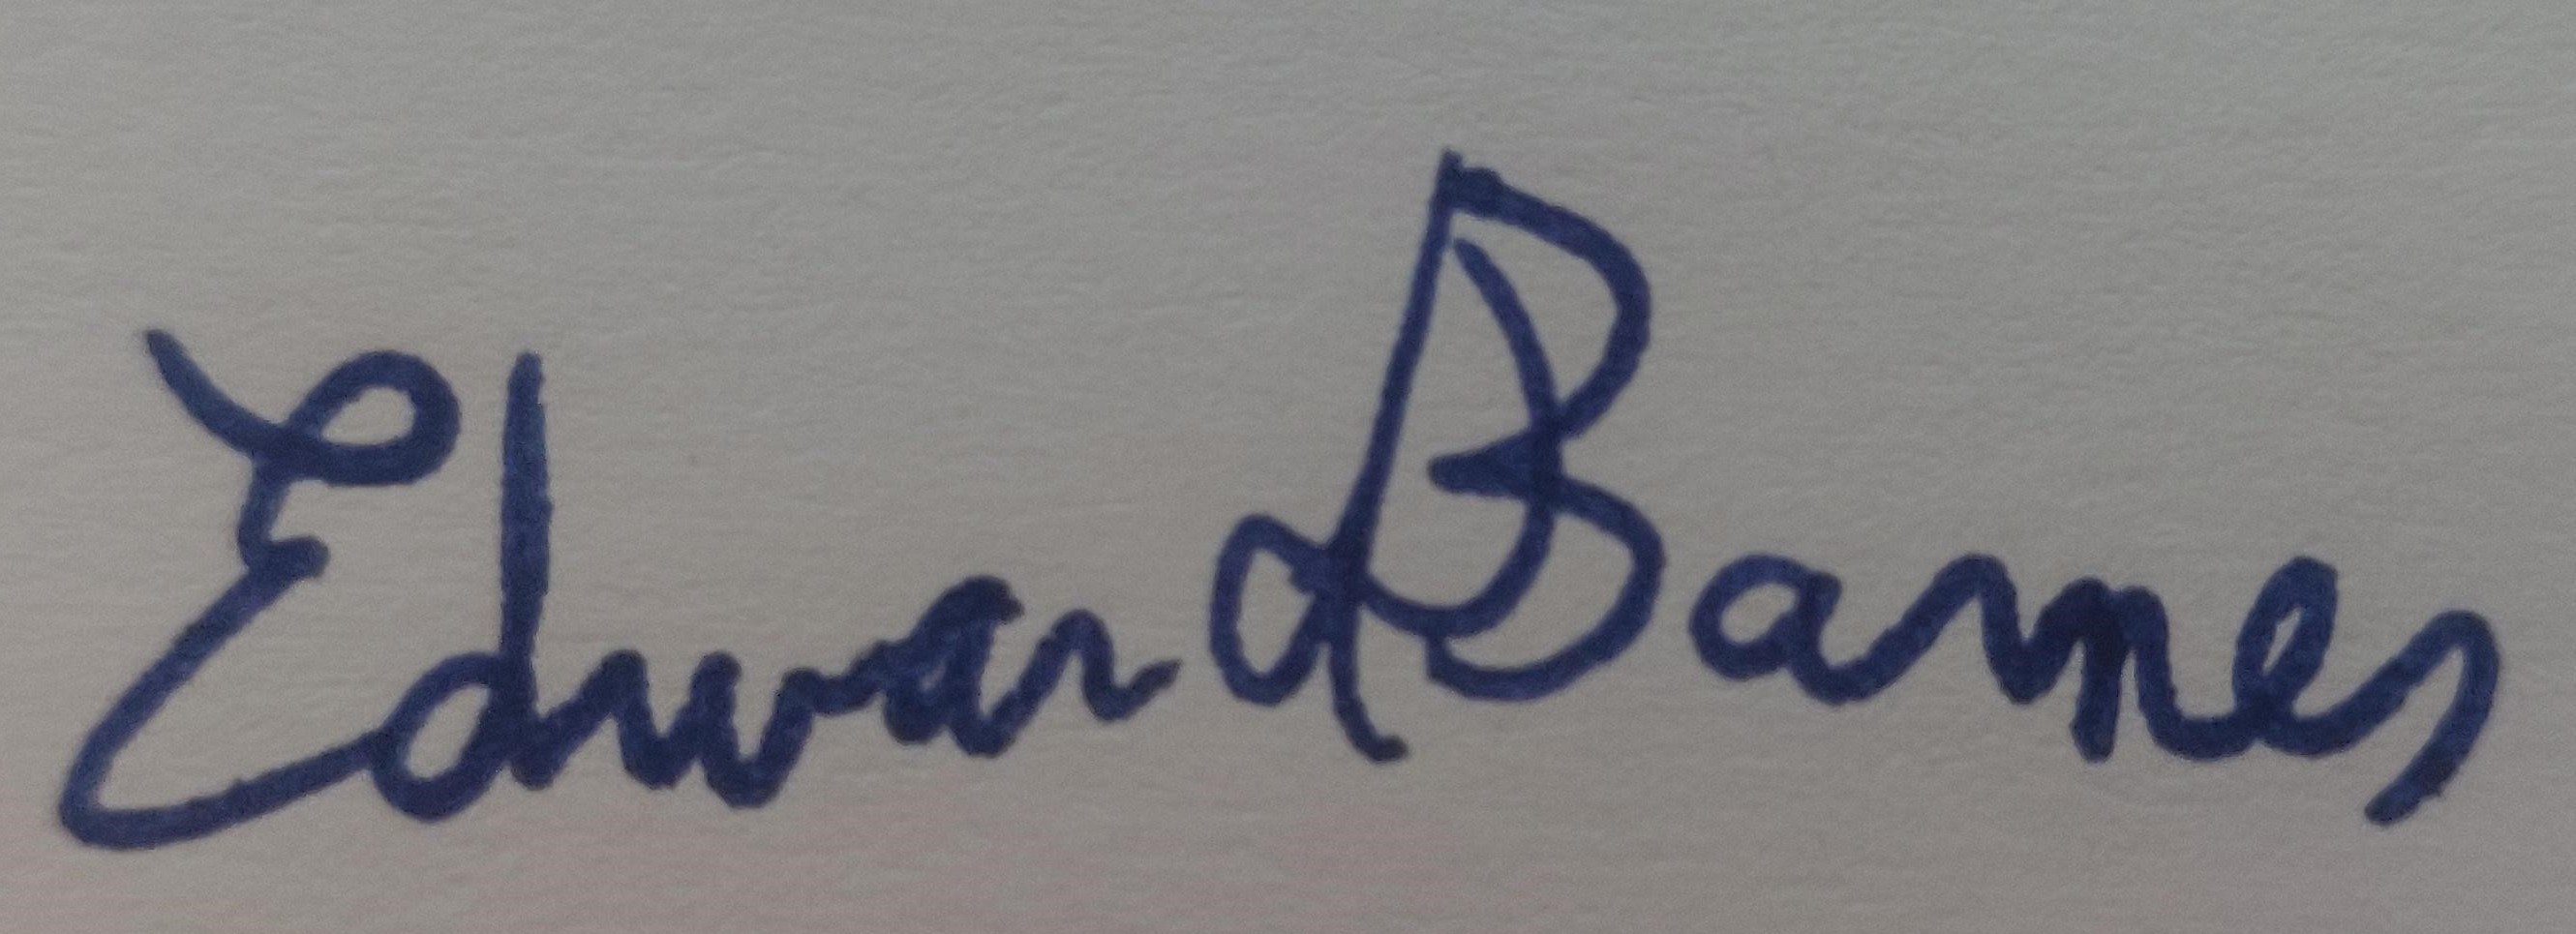 Edward Barnes